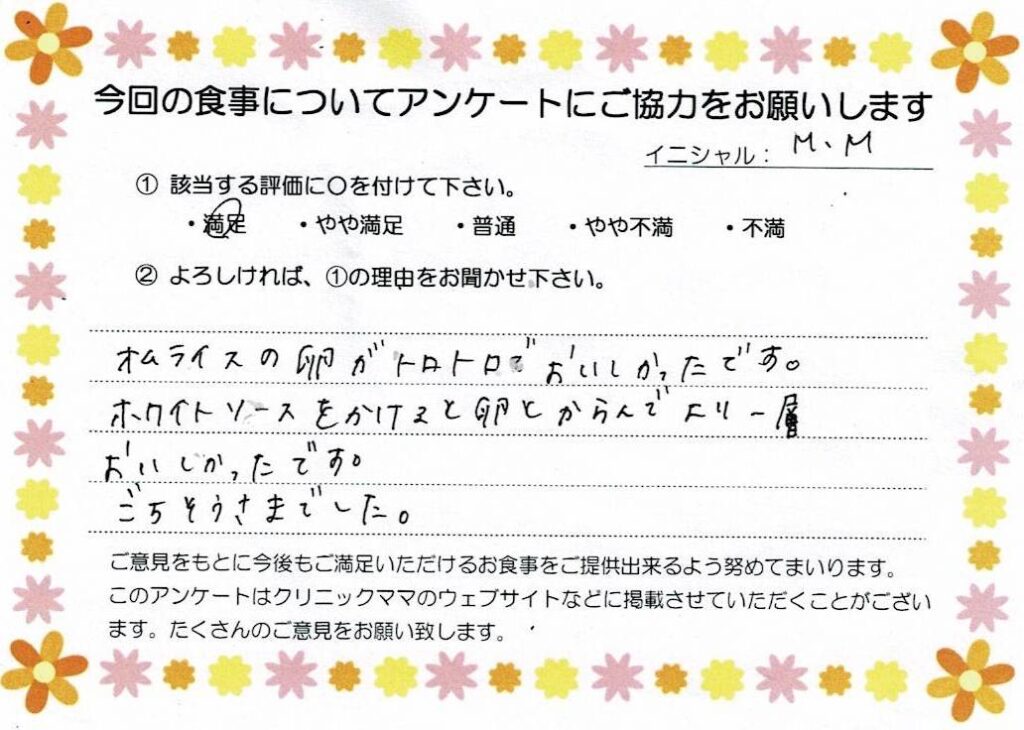 今回の食事についてアンケートにご協力をお願いします
イニシャル： M、M
① 該当する評価に〇を付けて下さい。
・満足 ・やや満足 ・普通 ・やや不満 ・不満
② よろしければ、①の理由をお聞かせ下さい。
オムライスの卵がトロトロでおいしかったです。
ホワイトソースをかけると卵とからんでより一層
おいしかったです。
ごちそうさまでした。
ご意見をもとに今後もご満足いただけるお食事をご提供出来るよう努めてまいります。
このアンケートはクリニックママのウェブサイトなどに掲載させていただくことがござい
ます。たくさんのご意見をお願い致します。